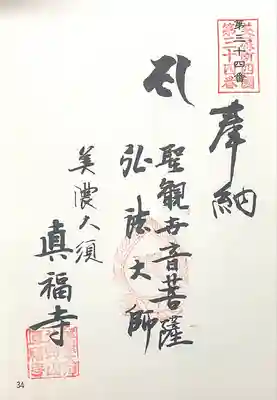 第三十四番
奉納
聖観世音菩薩
弘法大師
美濃大須
真福寺
34